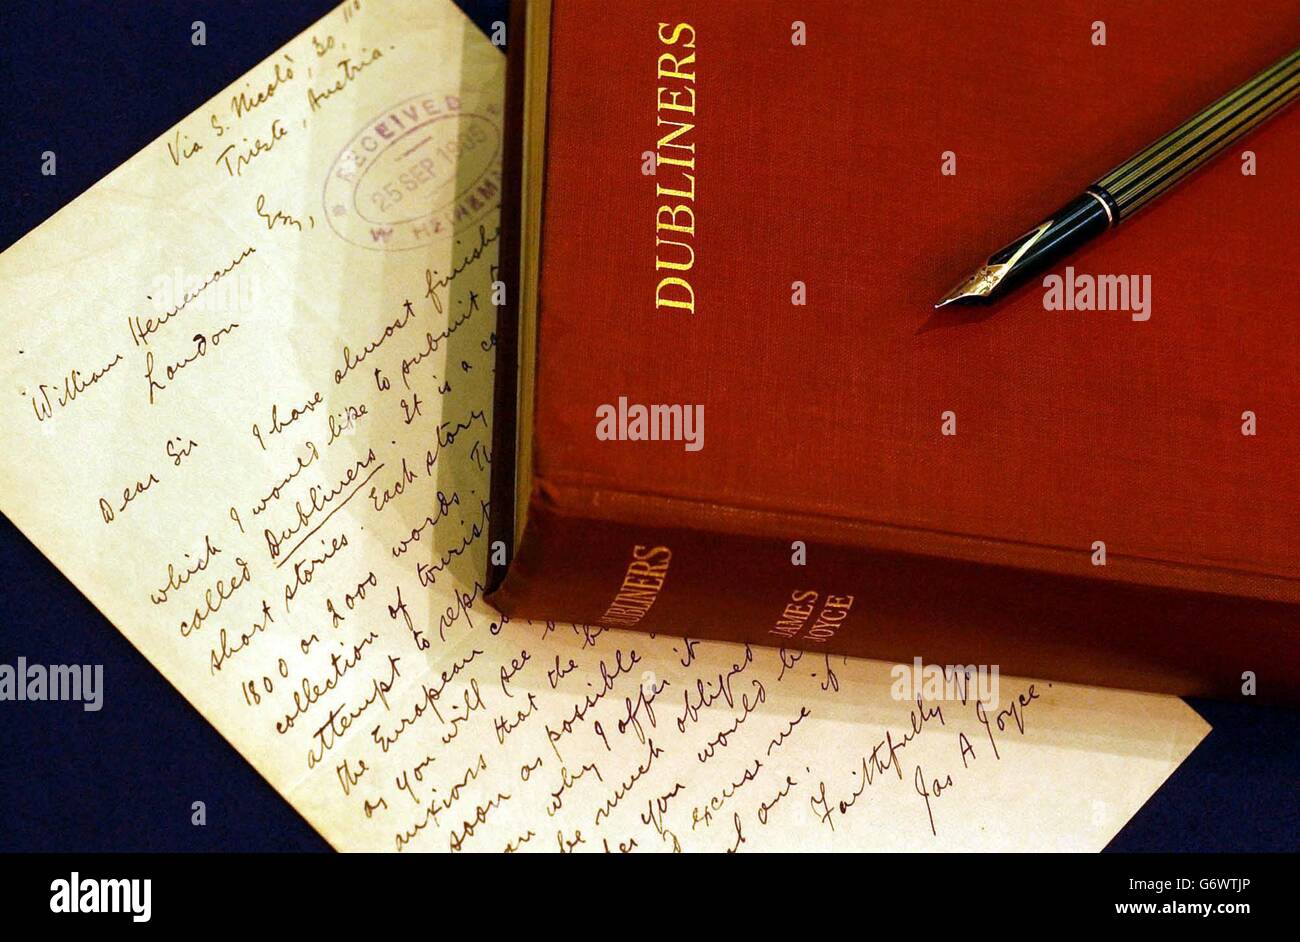 Via S. Nicolò, 30, II°
Trieste, Austria.
RECEIVED
25 SEP 1905
W HEINEM
William Heinemann Esq,
London
Dear Sir I have almost finishe
which I would like to submit t
called Dubliners. It is a co
short stories. Each story
1800 or 2000 words. Th
collection of tourist
attempt to repr
the European c
as you will see
anxious that the b
soon as possible
why I offer it
be much obliged
you would
excuse me if
one.
Faithfully yo
Jas A Joyce.
DUBLINERS
UBLINERS
JAMES
JOYCE
alamy
alamy
Image ID: G6WTJP
www.alamy.com